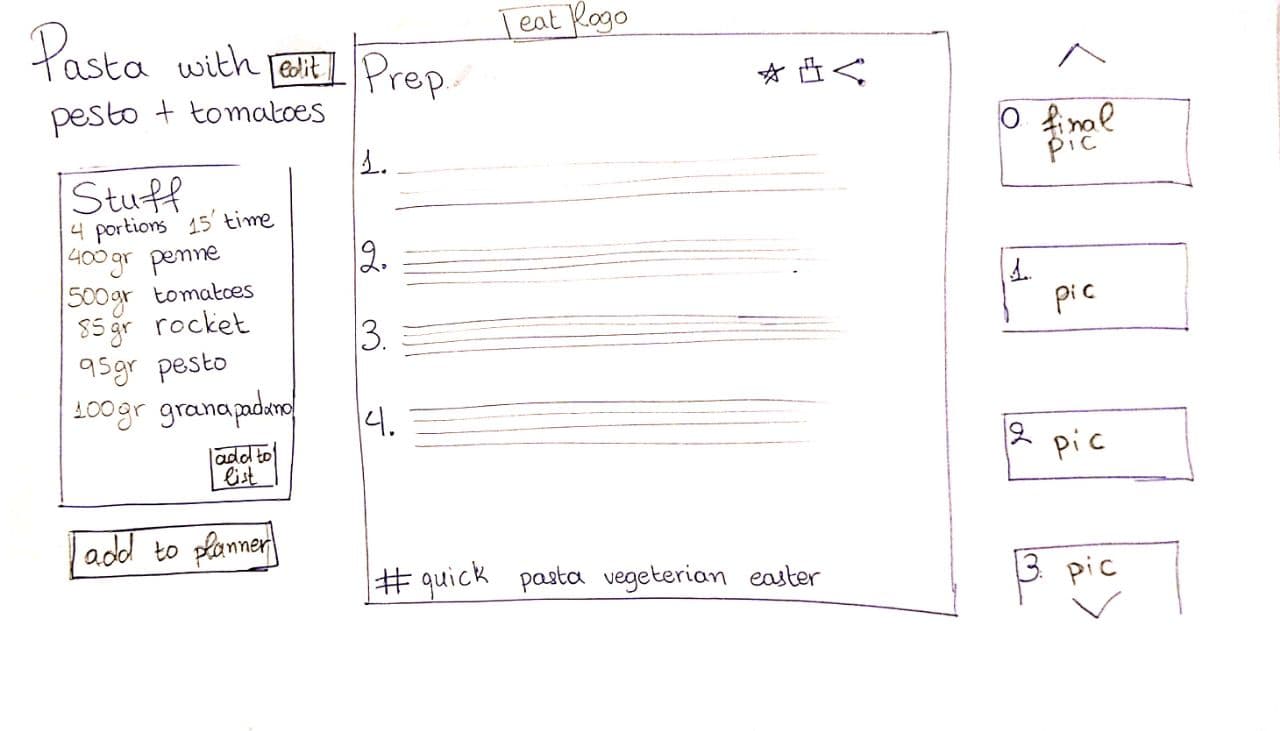 eat logo
Pasta with edit
pesto + tomatoes
Stuff
4 portions 15' time
400gr penne
500gr tomatoes
85gr rocket
95gr pesto
100gr grana padano
add to
list
add to planner
Prep.
1.
2.
3.
4.
# quick pasta vegeterian easter
0 final
pic
1.
pic
2 pic
3. pic